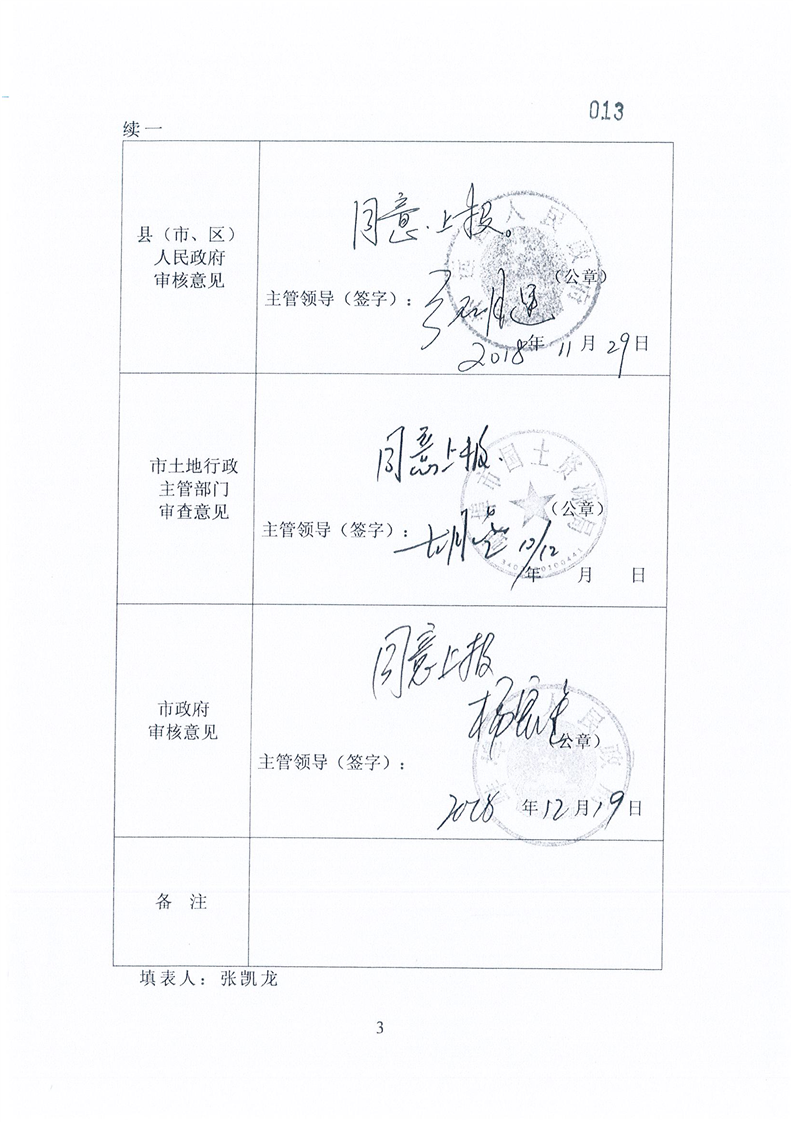 013
续一
县（市、区）
人民政府
审核意见
同意上报。
人民政
（公章）
主管领导（签字）：
2018年11月29日
市土地行政
主管部门
审查意见
同意上报.
市国土资源局
（公章）
主管领导（签字）：
10/12
年 月 日
市政府
审核意见
同意上报
人民政
（公章）
主管领导（签字）：
2018年12月19日
备 注
填表人：张凯龙
3